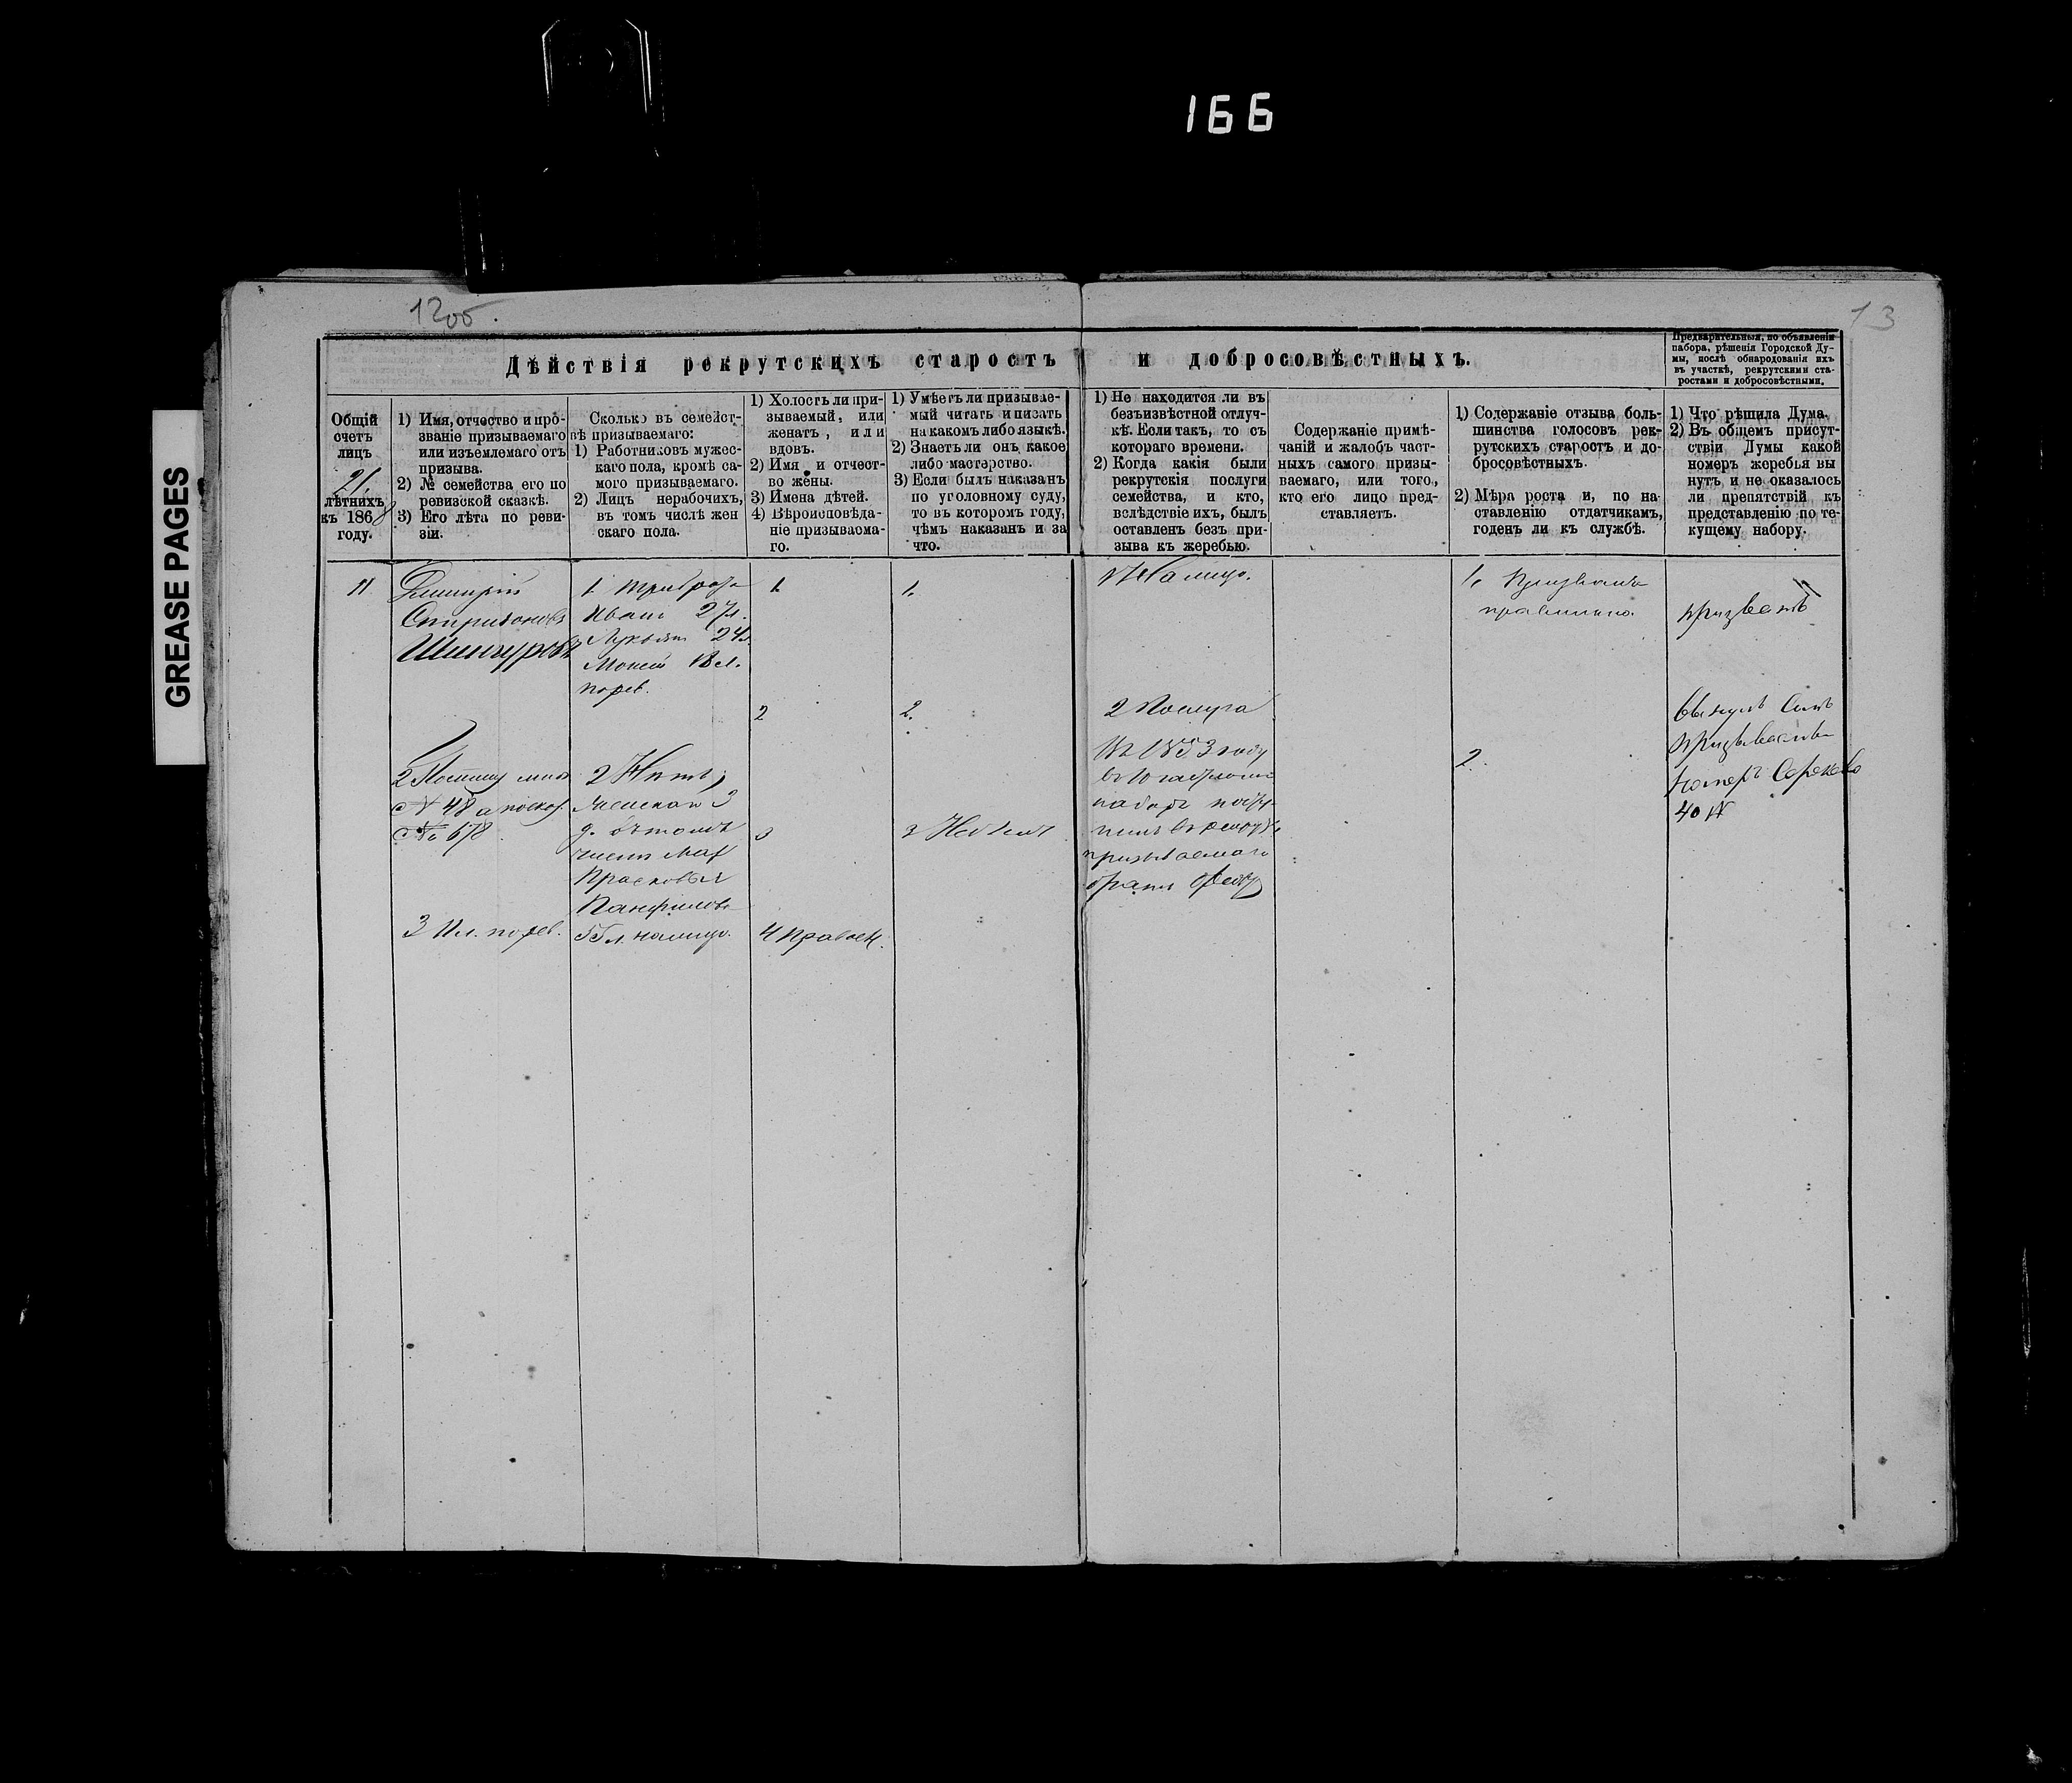 166
GREASE PAGES
12об.
13
Дѣйствія рекрутскихъ старостъ и добросовѣстныхъ.
Предварительныя, по объявленіи
набора, рѣшенія Городской Ду-
мы, послѣ обнародованія ихъ
въ участкѣ, рекрутскими ста-
ростами и добросовѣстными.
Общій
счетъ
лицъ
21
лѣтнихъ
къ 1868
году.
1) Имя, отчество и про-
званіе призываемаго
или изъемлемаго отъ
призыва.
2) № семейства его по
ревизской сказкѣ.
3) Его лѣта по реви-
зіи.
Сколько въ семейст-
вѣ призываемаго:
1) Работниковъ мужес-
каго пола, кромѣ са-
мого призываемаго.
2) Лицъ нерабочихъ,
въ томъ числѣ жен
скаго пола.
1) Холостъ ли при-
зываемый, или
женатъ, или
вдовъ.
2) Имя и отчест-
во жены.
3) Имена дѣтей.
4) Вѣроисповѣда-
ніе призываема-
го.
1) Умѣетъ ли призывае-
мый читать и писать
на какомъ либо языкѣ.
2) Знаетъ ли онъ какое
либо мастерство.
3) Если былъ наказанъ
по уголовному суду,
то въ которомъ году,
чѣмъ наказанъ и за
что.
1) Не находится ли въ
безъизвѣстной отлуч-
кѣ. Если такъ, то съ
котораго времени.
2) Когда какія были
рекрутскія послуги
семейства, и кто,
вслѣдствіе ихъ, былъ
оставленъ безъ при-
зыва къ жеребью.
Содержаніе примѣ-
чаній и жалобъ част-
ныхъ самого призы-
ваемаго, или того,
кто его лицо пред-
ставляетъ.
1) Содержаніе отзыва боль-
шинства голосовъ рек-
рутскихъ старостъ и до-
бросовѣстныхъ.
2) Мѣра роста и, по на-
ставленію отдатчикамъ,
годенъ ли къ службѣ.
1) Что рѣшила Дума.
2) Въ общемъ присут-
ствіи Думы какой
номеръ жеребья вы
нутъ и не оказалось
ли препятствій къ
представленію по те-
кущему набору.
11
Дмитрій
Шингуровъ
2
№ 48 а
№ 678
3 по рев.
1 три брата
Иванъ 27л.
Лукьян 24л.
Мокей 18л.
по рев.
2 Нѣтъ;
женскаго 3
д. въ томъ
числѣ мать
Прасковья
Панфилова
55 л. налицо.
1
2
3
4 Правосл.
1.
2.
3 Не былъ
1 Налицо.
2 Послуга
въ 1853 году
въ 10
наборъ посту-
пилъ въ рекруты
призываемаго
братъ
1. Призванъ
правильно.
2.
призвать
Вынулъ Самъ
призываемый
номеръ Сороковой
40 №